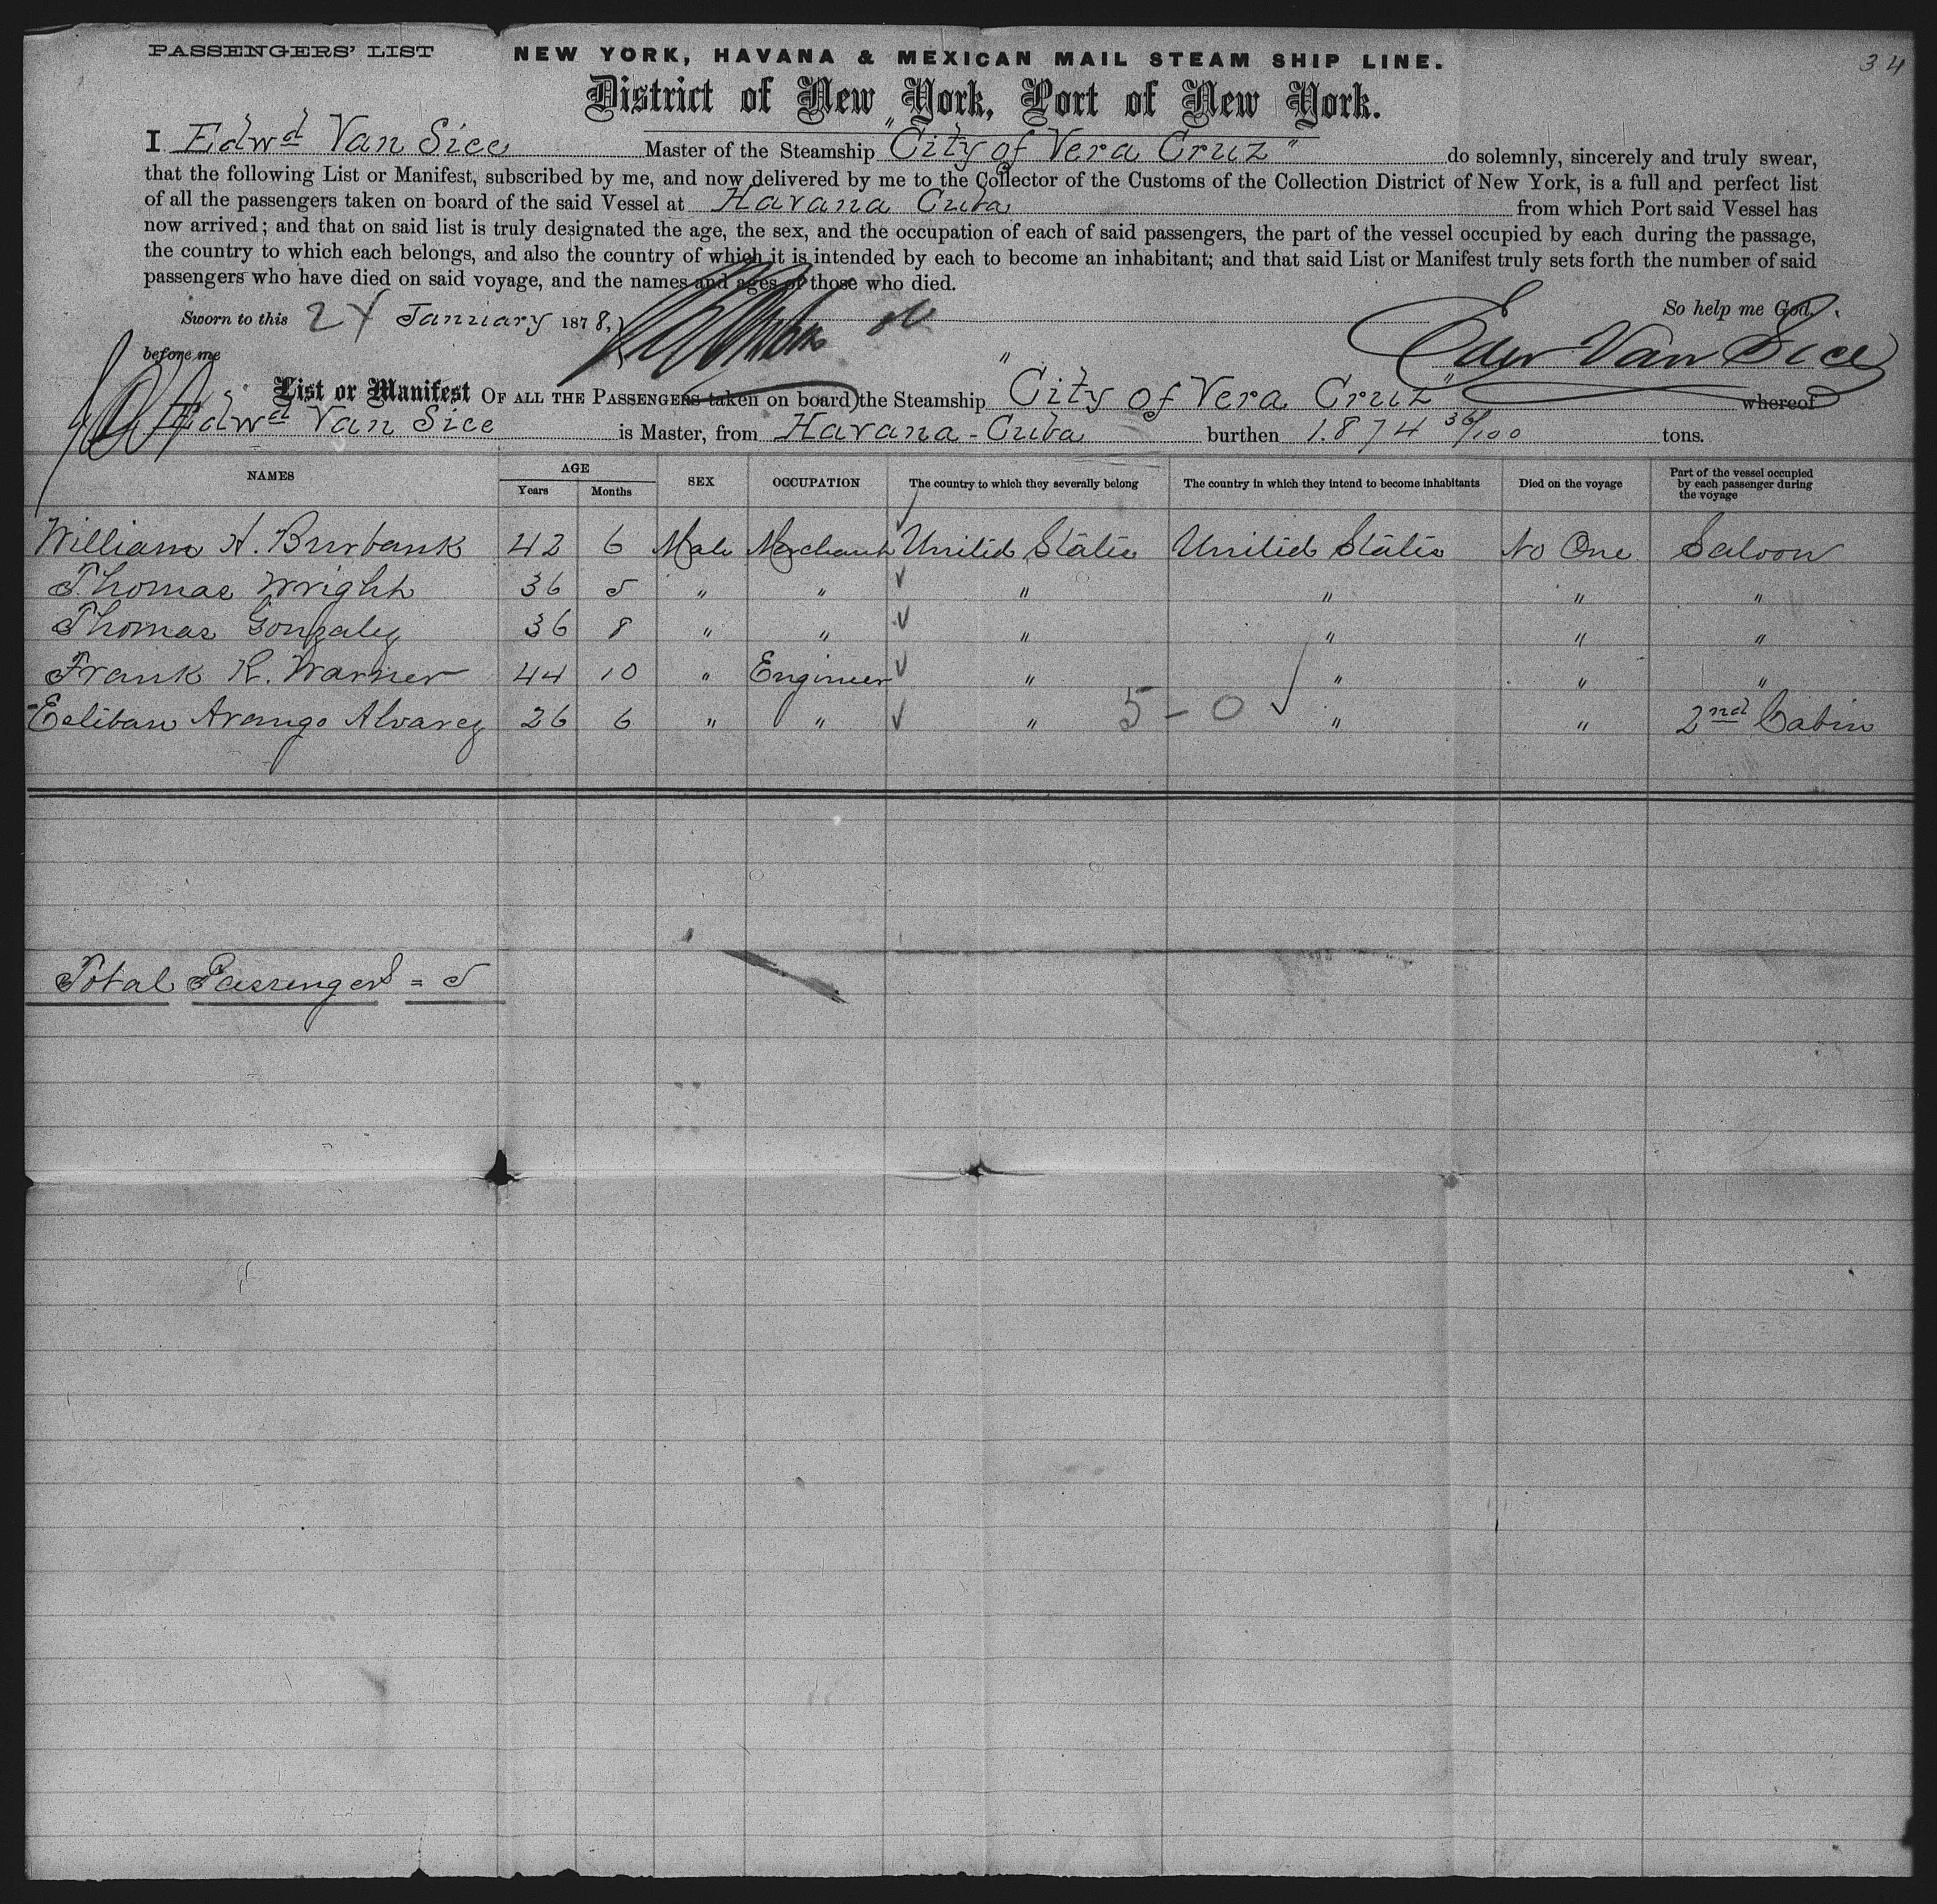 PASSENGERS' LIST NEW YORK, HAVANA & MEXICAN MAIL STEAM SHIP LINE. 34
District of New York, Port of New York.
I Edwd Van Sice Master of the Steamship "City of Vera Cruz" do solemnly, sincerely and truly swear,
that the following List or Manifest, subscribed by me, and now delivered by me to the Collector of the Customs of the Collection District of New York, is a full and perfect list
of all the passengers taken on board of the said Vessel at Havana Cuba from which Port said Vessel has
now arrived; and that on said list is truly designated the age, the sex, and the occupation of each of said passengers, the part of the vessel occupied by each during the passage,
the country to which each belongs, and also the country of which it is intended by each to become an inhabitant; and that said List or Manifest truly sets forth the number of said
passengers who have died on said voyage, and the names and ages of those who died.
Sworn to this 24 January 1878, So help me God.
before me Edw Van Sice
List or Manifest OF ALL THE PASSENGERS taken on board the Steamship "City of Vera Cruz" whereof
Edwd Van Sice is Master, from Havana - Cuba burthen 1.874 36/100 tons.
NAMES AGE Years Months SEX OCCUPATION The country to which they severally belong The country in which they intend to become inhabitants Died on the voyage Part of the vessel occupied by each passenger during the voyage
William H. Burbank 42 6 Male Merchant United States United States No One Saloon
Thomas Wright 36 5 " " " " " "
Thomas Gonzalez 36 8 " " " " " "
Frank R. Warner 44 10 " Engineer " " " "
Eeliban Arango Alvarez 26 6 " " " 5-0 " " 2nd Cabin
Total Passengers = 5